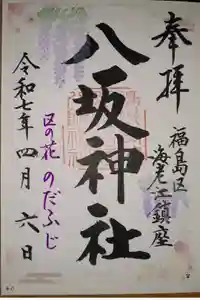 奉拝
福島区
海老江鎮座
八坂神社
区の花 のだふじ
令和七年四月六日